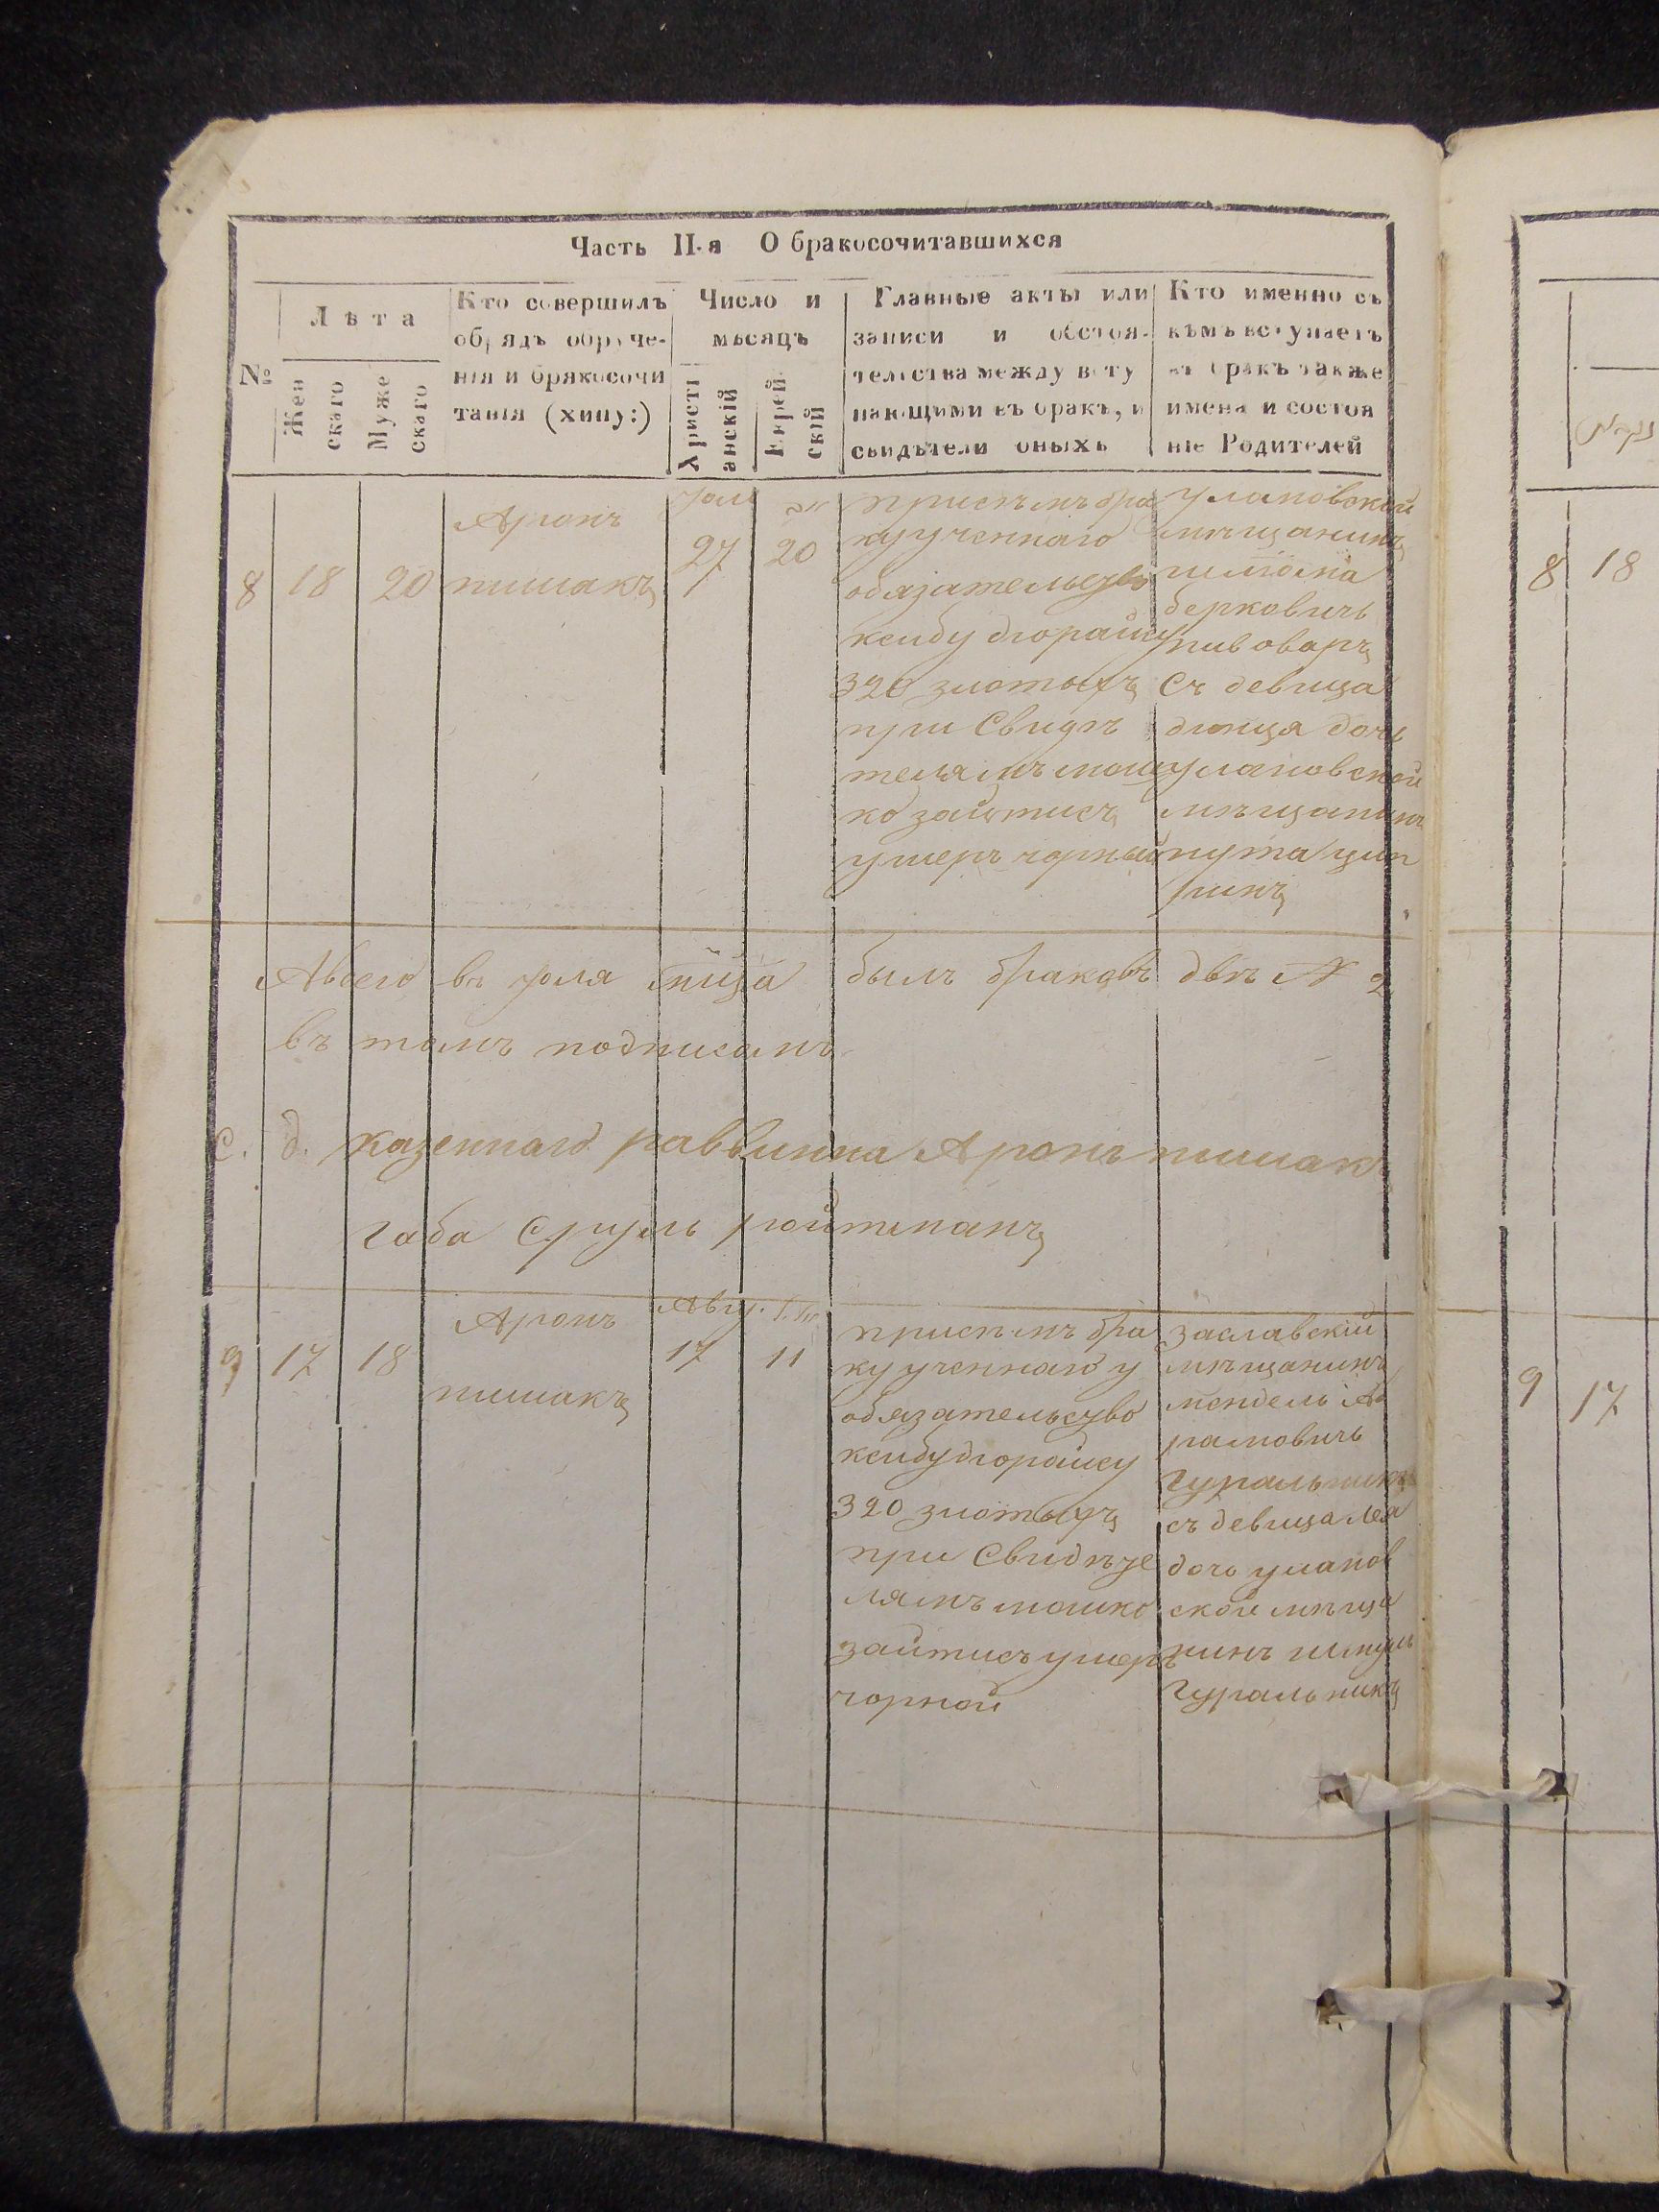 Часть II-я О бракосочитавшихся
№
Лѣта
Жен
скаго
Муже
скаго
Кто совершилъ
обрядъ обруче-
нія и бракосочи
танія (хипу:)
Число и
мѣсяцъ
Христі
анскій
Еврей
скій
Главные акты или
записи и обстоя-
тельства между всту
пающими въ бракъ, и
свидѣтели оныхъ
Кто именно съ
кѣмъ вступаетъ
въ бракъ также
имена и состоя
ніе Родителей
8
18
20
Аронъ
пишакъ
27
20
присемъ бра
ку ученнаго
обязательство
ксибу діорайсу
320 злотыхъ
при Свидѣ
телямъ мош
ко зайтисъ
ушеръ чорный
улановской
мѣщанинъ
шліома
берковичъ
пивоваръ
Съ девица
дочь
улановской
мѣщанинъ
нута
Авсего въ юля мца былъ браковъ двѣ № 2
въ томъ подписамъ
С. д. казеннаго раввинна Аронъ пишакъ
габа Сруль ройтманъ
9
17
18
Аронъ
пишакъ
Авгу.
17
11
присемъ бра
ку ученнаго у
обязательство
ксибу діорайсу
320 злотыхъ
при Свидѣте
лямъ мошко
зайтисъ ушеръ
чорной
заславскій
мѣщанинъ
мендель Аб
рамовичъ
Гуральникъ
съ девица Лея
дочь уланов
ской мѣща
нинъ шмуль
Гуральникъ
8
18
9
17